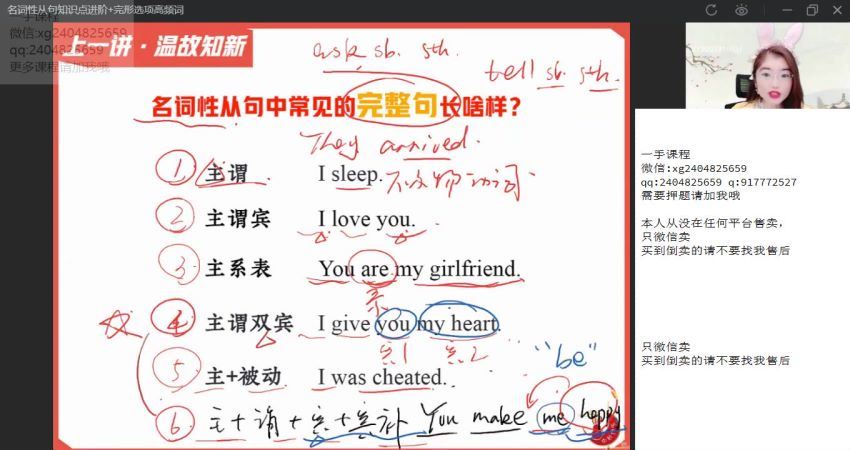 名词性从句知识点进阶+完形选项高频词
一手课程
微信:xg2404825659
qq:2404825659
更多课程请加我哦
上一讲·温故知新
ask sb. sth.
tell sb. sth.
名词性从句中常见的完整句长啥样?
They arrived.
① 主谓 I sleep. 不及物动词
② 主谓宾 I love you.
③ 主系表 You are my girlfriend.
系
④ 主谓双宾 I give you my heart.
宾1 宾2
"be"
⑤ 主+被动 I was cheated.
⑥ 主+谓+宾+宾补 You make me happy
一手课程
微信:xg2404825659
qq:2404825659 q:917772527
需要押题请加我哦
本人从没在任何平台售卖,
只微信卖
买到倒卖的请不要找我售后
只微信卖
买到倒卖的请不要找我售后